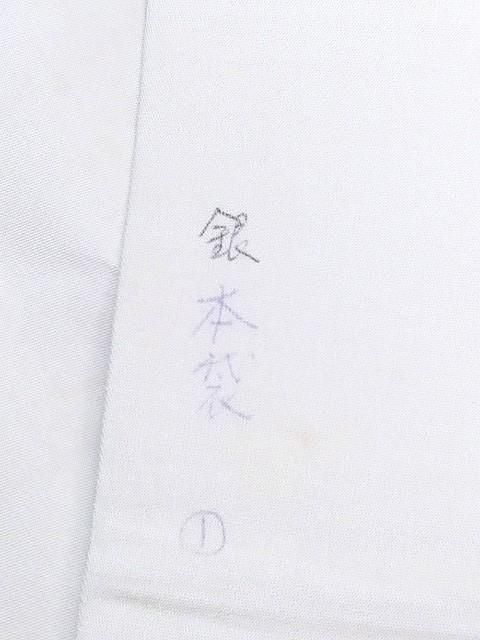 銀
本袋
①